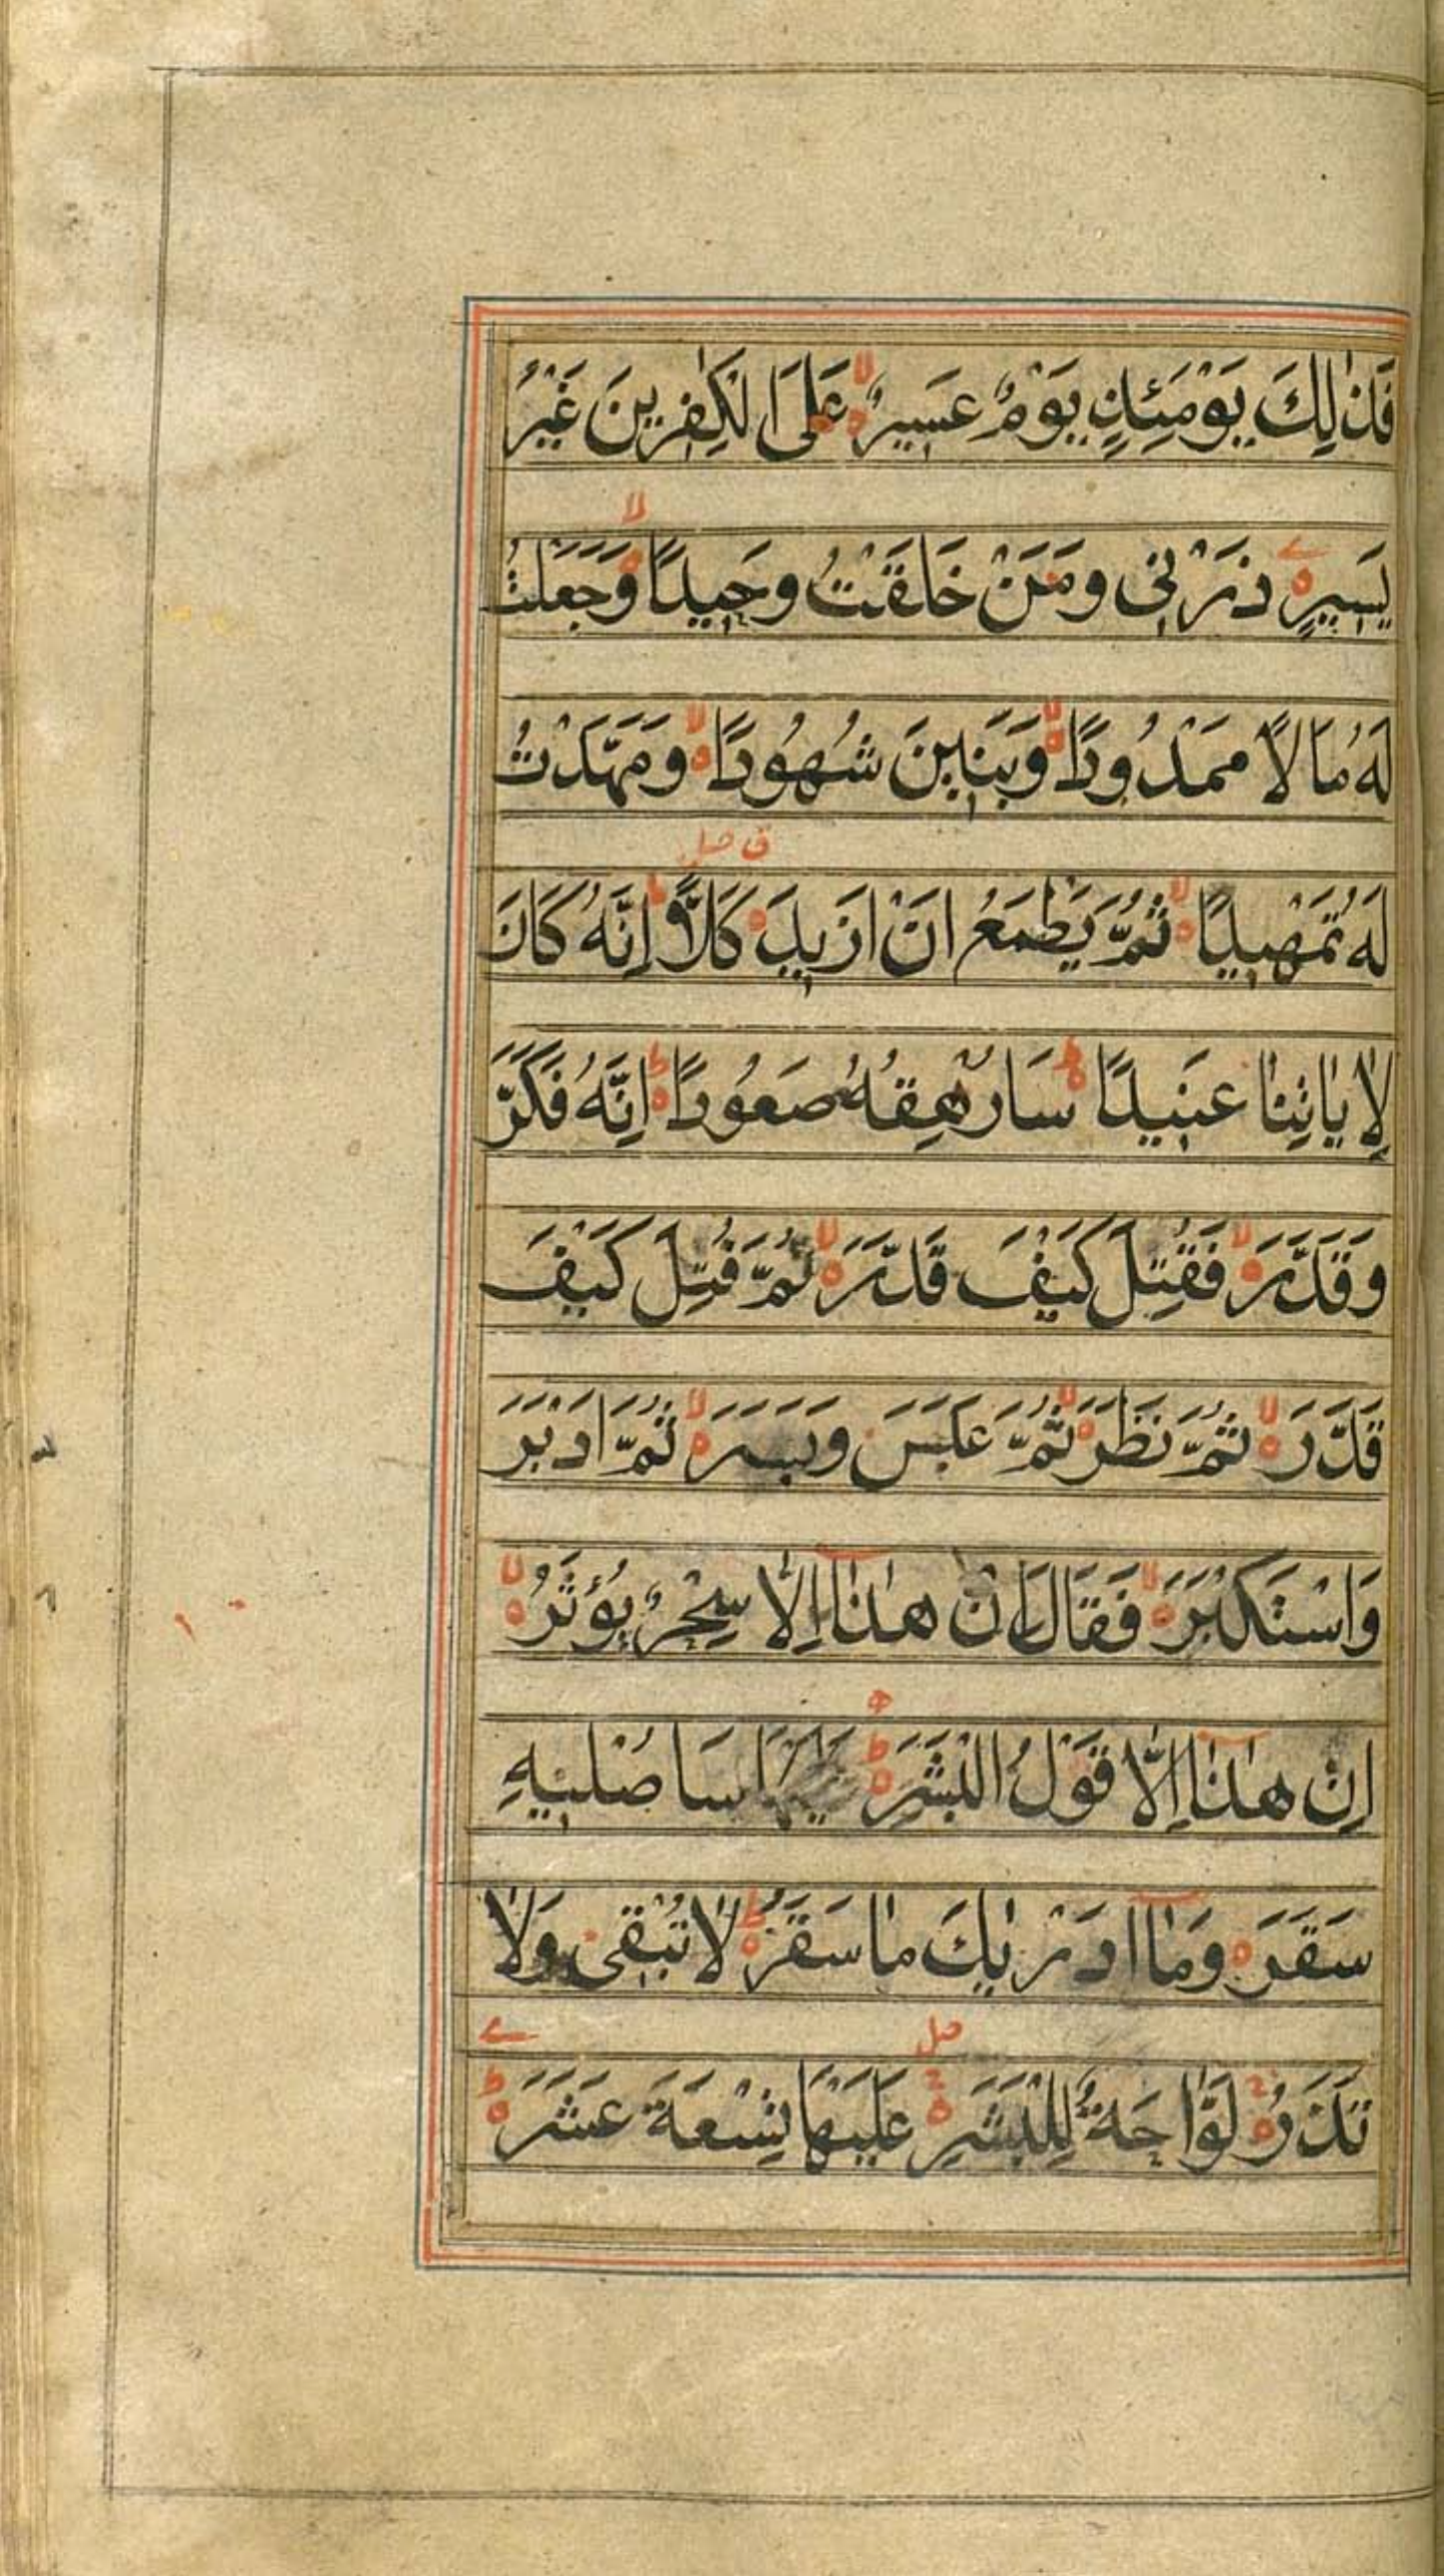 فَذٰلِكَ يَوْمَئِذٍ يَوْمٌ عَسِيرٌ لا عَلَى الْكٰفِرِينَ غَيْرُ
يَسِيرٍ ذَرْنِي وَمَنْ خَلَقْتُ وَحِيدًا لا وَجَعَلْتُ
لَهُ مَالًا مَمْدُودًا لا وَبَنِينَ شُهُودًا لا وَمَهَّدْتُ
لَهُ تَمْهِيدًا لا ثُمَّ يَطْمَعُ اَنْ اَزِيدَ ق صلى كَلَّا ط اِنَّهُ كَانَ
لِاٰيَاتِنَا عَنِيدًا ط سَاُرْهِقُهُ صَعُودًا ط اِنَّهُ فَكَّرَ
وَقَدَّرَ لا فَقُتِلَ كَيْفَ قَدَّرَ لا ثُمَّ قُتِلَ كَيْفَ
قَدَّرَ لا ثُمَّ نَظَرَ لا ثُمَّ عَبَسَ وَبَسَرَ لا ثُمَّ اَدْبَرَ
وَاسْتَكْبَرَ لا فَقَالَ اِنْ هٰذَا اِلَّا سِحْرٌ يُؤْثَرُ لا
اِنْ هٰذَا اِلَّا قَوْلُ الْبَشَرِ ط سَاُصْلِيهِ
سَقَرَ وَمَا اَدْرٰيكَ مَا سَقَرُ ط لَا تُبْقِى وَلَا
تَذَرُ ج لَوَّاحَةٌ لِلْبَشَرِ ج صلى عَلَيْهَا تِسْعَةَ عَشَرَ ط